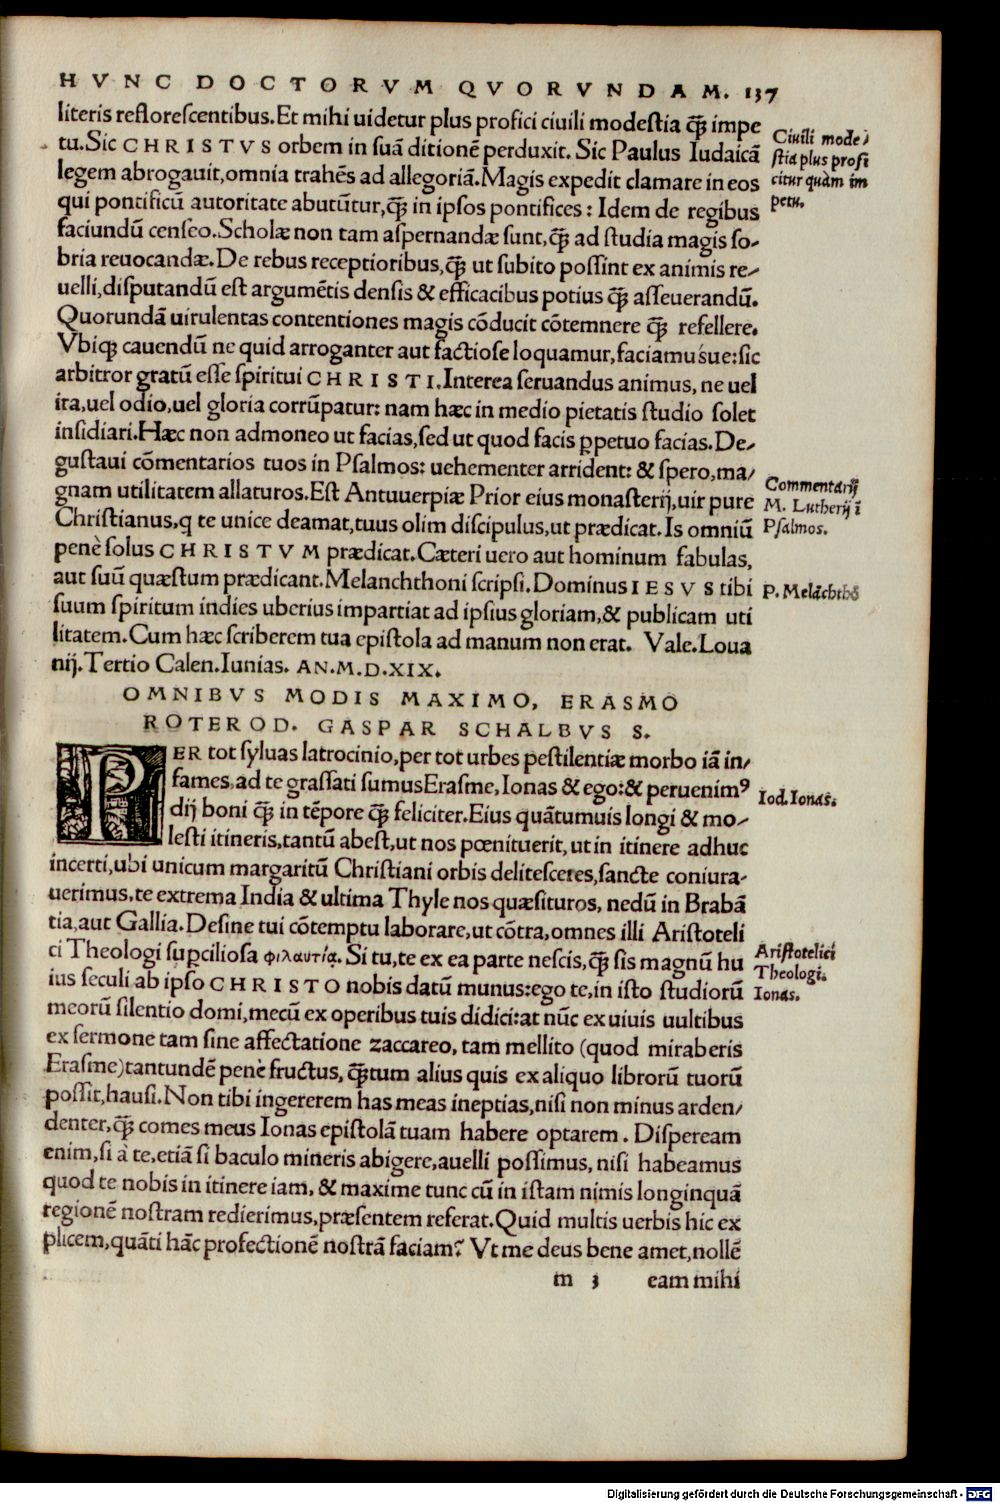 HVNC DOCTORVM QVORVNDAM. 137
literis reflorescentibus. Et mihi uidetur plus profici ciuili modestia q̃ impe
tu. Sic CHRISTVS orbem in suã ditionẽ perduxit. Sic Paulus Iudaicã
legem abrogauit, omnia trahẽs ad allegoriã. Magis expedit clamare in eos
qui pontificũ autoritate abutũtur, q̃ in ipsos pontifices: Idem de regibus
faciundũ censeo. Scholæ non tam aspernandæ sunt, q̃ ad studia magis so-
bria reuocandæ. De rebus receptioribus, q̃ ut subito possint ex animis re-
uelli, disputandũ est argumẽtis densis & efficacibus potius q̃ asseuerandũ.
Quorundã uirulentas contentiones magis cõducit cõtemnere q̃ refellere.
Vbiqꝫ cauendũ ne quid arroganter aut factiose loquamur, faciamuśue: sic
arbitror gratũ esse spiritui CHRISTI. Interea seruandus animus, ne uel
ira, uel odio, uel gloria corrũpatur: nam hæc in medio pietatis studio solet
insidiari. Hæc non admoneo ut facias, sed ut quod facis ꝑpetuo facias. De-
gustaui cõmentarios tuos in Psalmos: uehementer arrident: & spero, ma-
gnam utilitatem allaturos. Est Antuuerpiæ Prior eius monasterij, uir pure
Christianus, q te unice deamat, tuus olim discipulus, ut prædicat. Is omniũ
penè solus CHRISTVM prædicat. Cæteri uero aut hominum fabulas,
aut suũ quæstum prædicant. Melanchthoni scripsi. Dominus IESVS tibi
suum spiritum indies uberius impartiat ad ipsius gloriam, & publicam uti
litatem. Cum hæc scriberem tua epistola ad manum non erat. Vale. Loua
nij. Tertio Calen. Iunias. AN. M. D. XIX.
Ciuili mode-
stia plus profi
citur quàm im
petu.
Commentarij
M. Lutherij ĩ
Psalmos.
P. Melãchthõ
OMNIBVS MODIS MAXIMO, ERASMO
ROTEROD. GASPAR SCHALBVS S.
PER tot syluas latrocinio, per tot urbes pestilentiæ morbo iã in-
fames, ad te grassati sumus Erasme, Ionas & ego: & peruenimꝰ
dij boni q̃ in tẽpore q̃ feliciter. Eius quãtumuis longi & mo-
lesti itineris, tantũ abest, ut nos pœnituerit, ut in itinere adhuc
incerti, ubi unicum margaritũ Christiani orbis delitesceres, sancte coniura-
uerimus, te extrema India & ultima Thyle nos quæsituros, nedũ in Brabã
tia, aut Gallia. Desine tui cõtemptu laborare, ut cõtra, omnes illi Aristoteli
ci Theologi suꝑciliosa φιλαυτίᾳ. Si tu, te ex ea parte nescis, q̃ sis magnũ hu
ius seculi ab ipso CHRISTO nobis datũ munus: ego te, in isto studiorũ
meorũ silentio domi, mecũ ex operibus tuis didici: at nũc ex uiuis uultibus
ex sermone tam sine affectatione zaccareo, tam mellito (quod miraberis
Erasme) tantundẽ penè fructus, q̃tum alius quis ex aliquo librorũ tuorũ
possit, hausi. Non tibi ingererem has meas ineptias, nisi non minus arden-
denter, q̃ comes meus Ionas epistolã tuam habere optarem. Dispeream
enim, si à te, etiã si baculo mineris abigere, auelli possimus, nisi habeamus
quod te nobis in itinere iam, & maxime tunc cũ in istam nimis longinquã
regionẽ nostram redierimus, præsentem referat. Quid multis uerbis hic ex
plicem, quãti hãc profectionẽ nostrã faciam? Vt me deus bene amet, nollẽ
Iod. Ionas.
Aristotelici
Theologi.
Ionas.
m 3 eam mihi
Digitalisierung gefördert durch die Deutsche Forschungsgemeinschaft - DFG